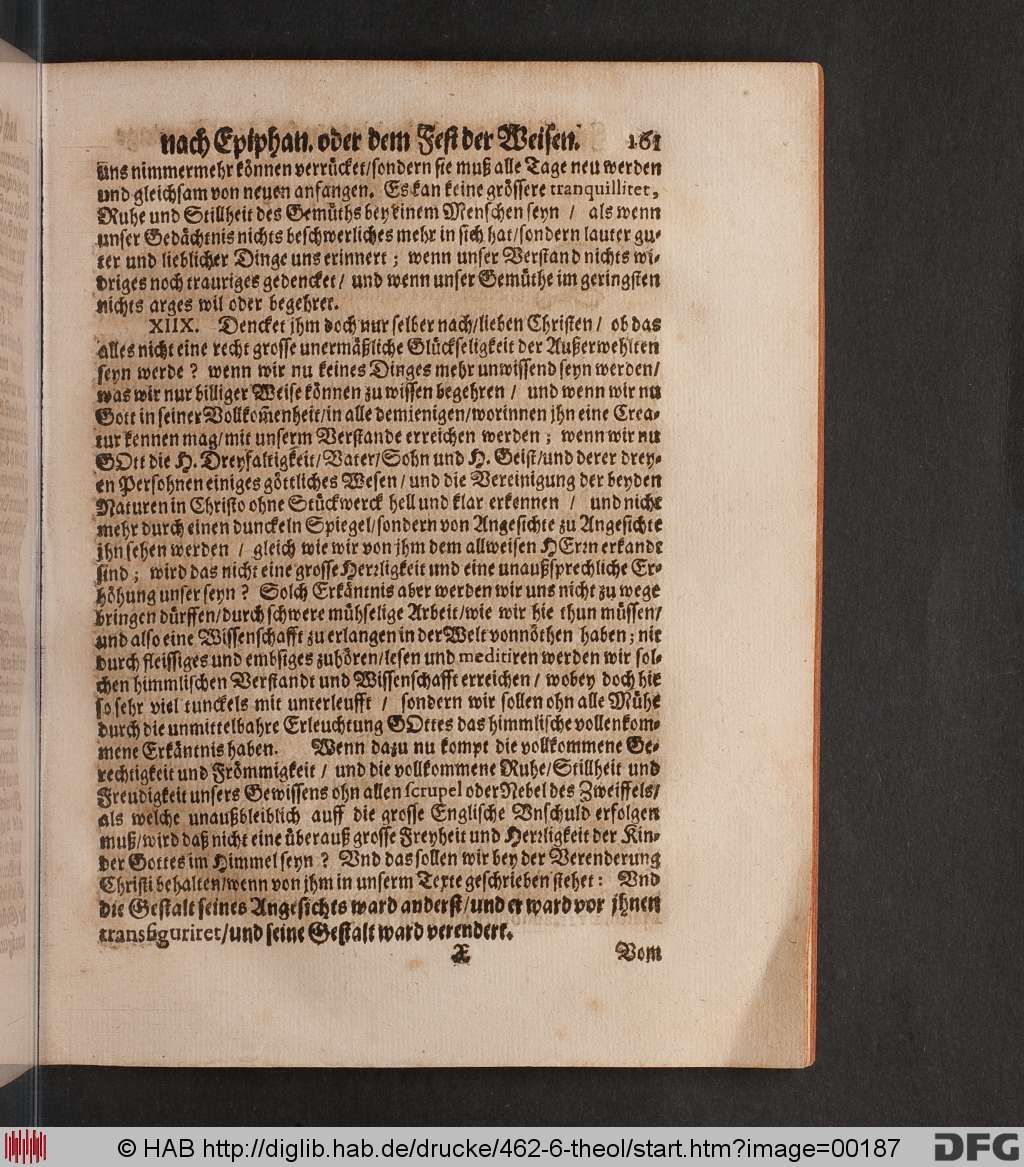 nach Epiphan. oder dem Fest der Weisen. 161
uns nimmermehr können verrücket/sondern sie muß alle Tage neu werden
und gleichsam von neuen anfangen. Es kan keine grössere tranquillitet,
Ruhe und Stillheit des Gemüths bey einem Menschen seyn / als wenn
unser Gedächtnis nichts beschwerliches mehr in sich hat/sondern lauter gu-
ter und lieblicher Dinge uns erinnert ; wenn unser Verstand nichts wi-
driges noch trauriges gedencket/ und wenn unser Gemüthe im geringsten
nichts arges wil oder begehret.
XIIX. Dencket jhm doch nur selber nach/lieben Christen / ob das
alles nicht eine recht grosse unermäßliche Glückseligkeit der Außerwehlten
seyn werde ? wenn wir nu keines Dinges mehr unwissend seyn werden/
was wir nur billiger Weise können zu wissen begehren / und wenn wir nu
Gott in seiner Vollkom̃enheit/in alle demjenigen/worinnen jhn eine Crea-
tur kennen mag/mit unserm Verstande erreichen werden ; wenn wir nu
GOtt die H. Dreyfaltigkeit/Vater/Sohn und H. Geist/und derer drey-
en Persohnen einiges göttliches Wesen / und die Vereinigung der beyden
Naturen in Christo ohne Stückwerck hell und klar erkennen / und nicht
mehr durch einen dunckeln Spiegel/sondern von Angesichte zu Angesichte
jhn sehen werden / gleich wie wir von jhm dem allweisen HErrn erkandt
sind ; wird das nicht eine grosse Herrligkeit und eine unaußsprechliche Er-
höhung unser seyn ? Solch Erkäntnis aber werden wir uns nicht zu wege
bringen dürffen/durch schwere mühselige Arbeit/wie wir hie thun müssen/
und also eine Wissenschafft zu erlangen in der Welt vonnöthen haben ; nit
durch fleissiges und embsiges zuhören/lesen und meditiren werden wir sol-
chen himmlischen Verstandt und Wissenschafft erreichen / wobey doch hie
so sehr viel tunckels mit unterleufft / sondern wir sollen ohn alle Mühe
durch die unmittelbahre Erleuchtung GOttes das himmlische vollenkom-
mene Erkäntnis haben. Wenn dazu nu kompt die vollkommene Ge-
rechtigkeit und Frömmigkeit / und die vollkommene Ruhe/Stillheit und
Freudigkeit unsers Gewissens ohn allen scrupel oder Nebel des Zweiffels/
als welche unaußbleiblich auff die grosse Englische Vnschuld erfolgen
muß/wird daß nicht eine überauß grosse Freyheit und Herrligkeit der Kin-
der Gottes im Himmel seyn ? Vnd das sollen wir bey der Verenderung
Christi behalten/wenn von jhm in unserm Texte geschrieben stehet : Vnd
die Gestalt seines Angesichts ward anderst/und er ward vor jhnen
transfiguriret/und seine Gestalt ward verendert.
X Vom
© HAB http://diglib.hab.de/drucke/462-6-theol/start.htm?image=00187 DFG